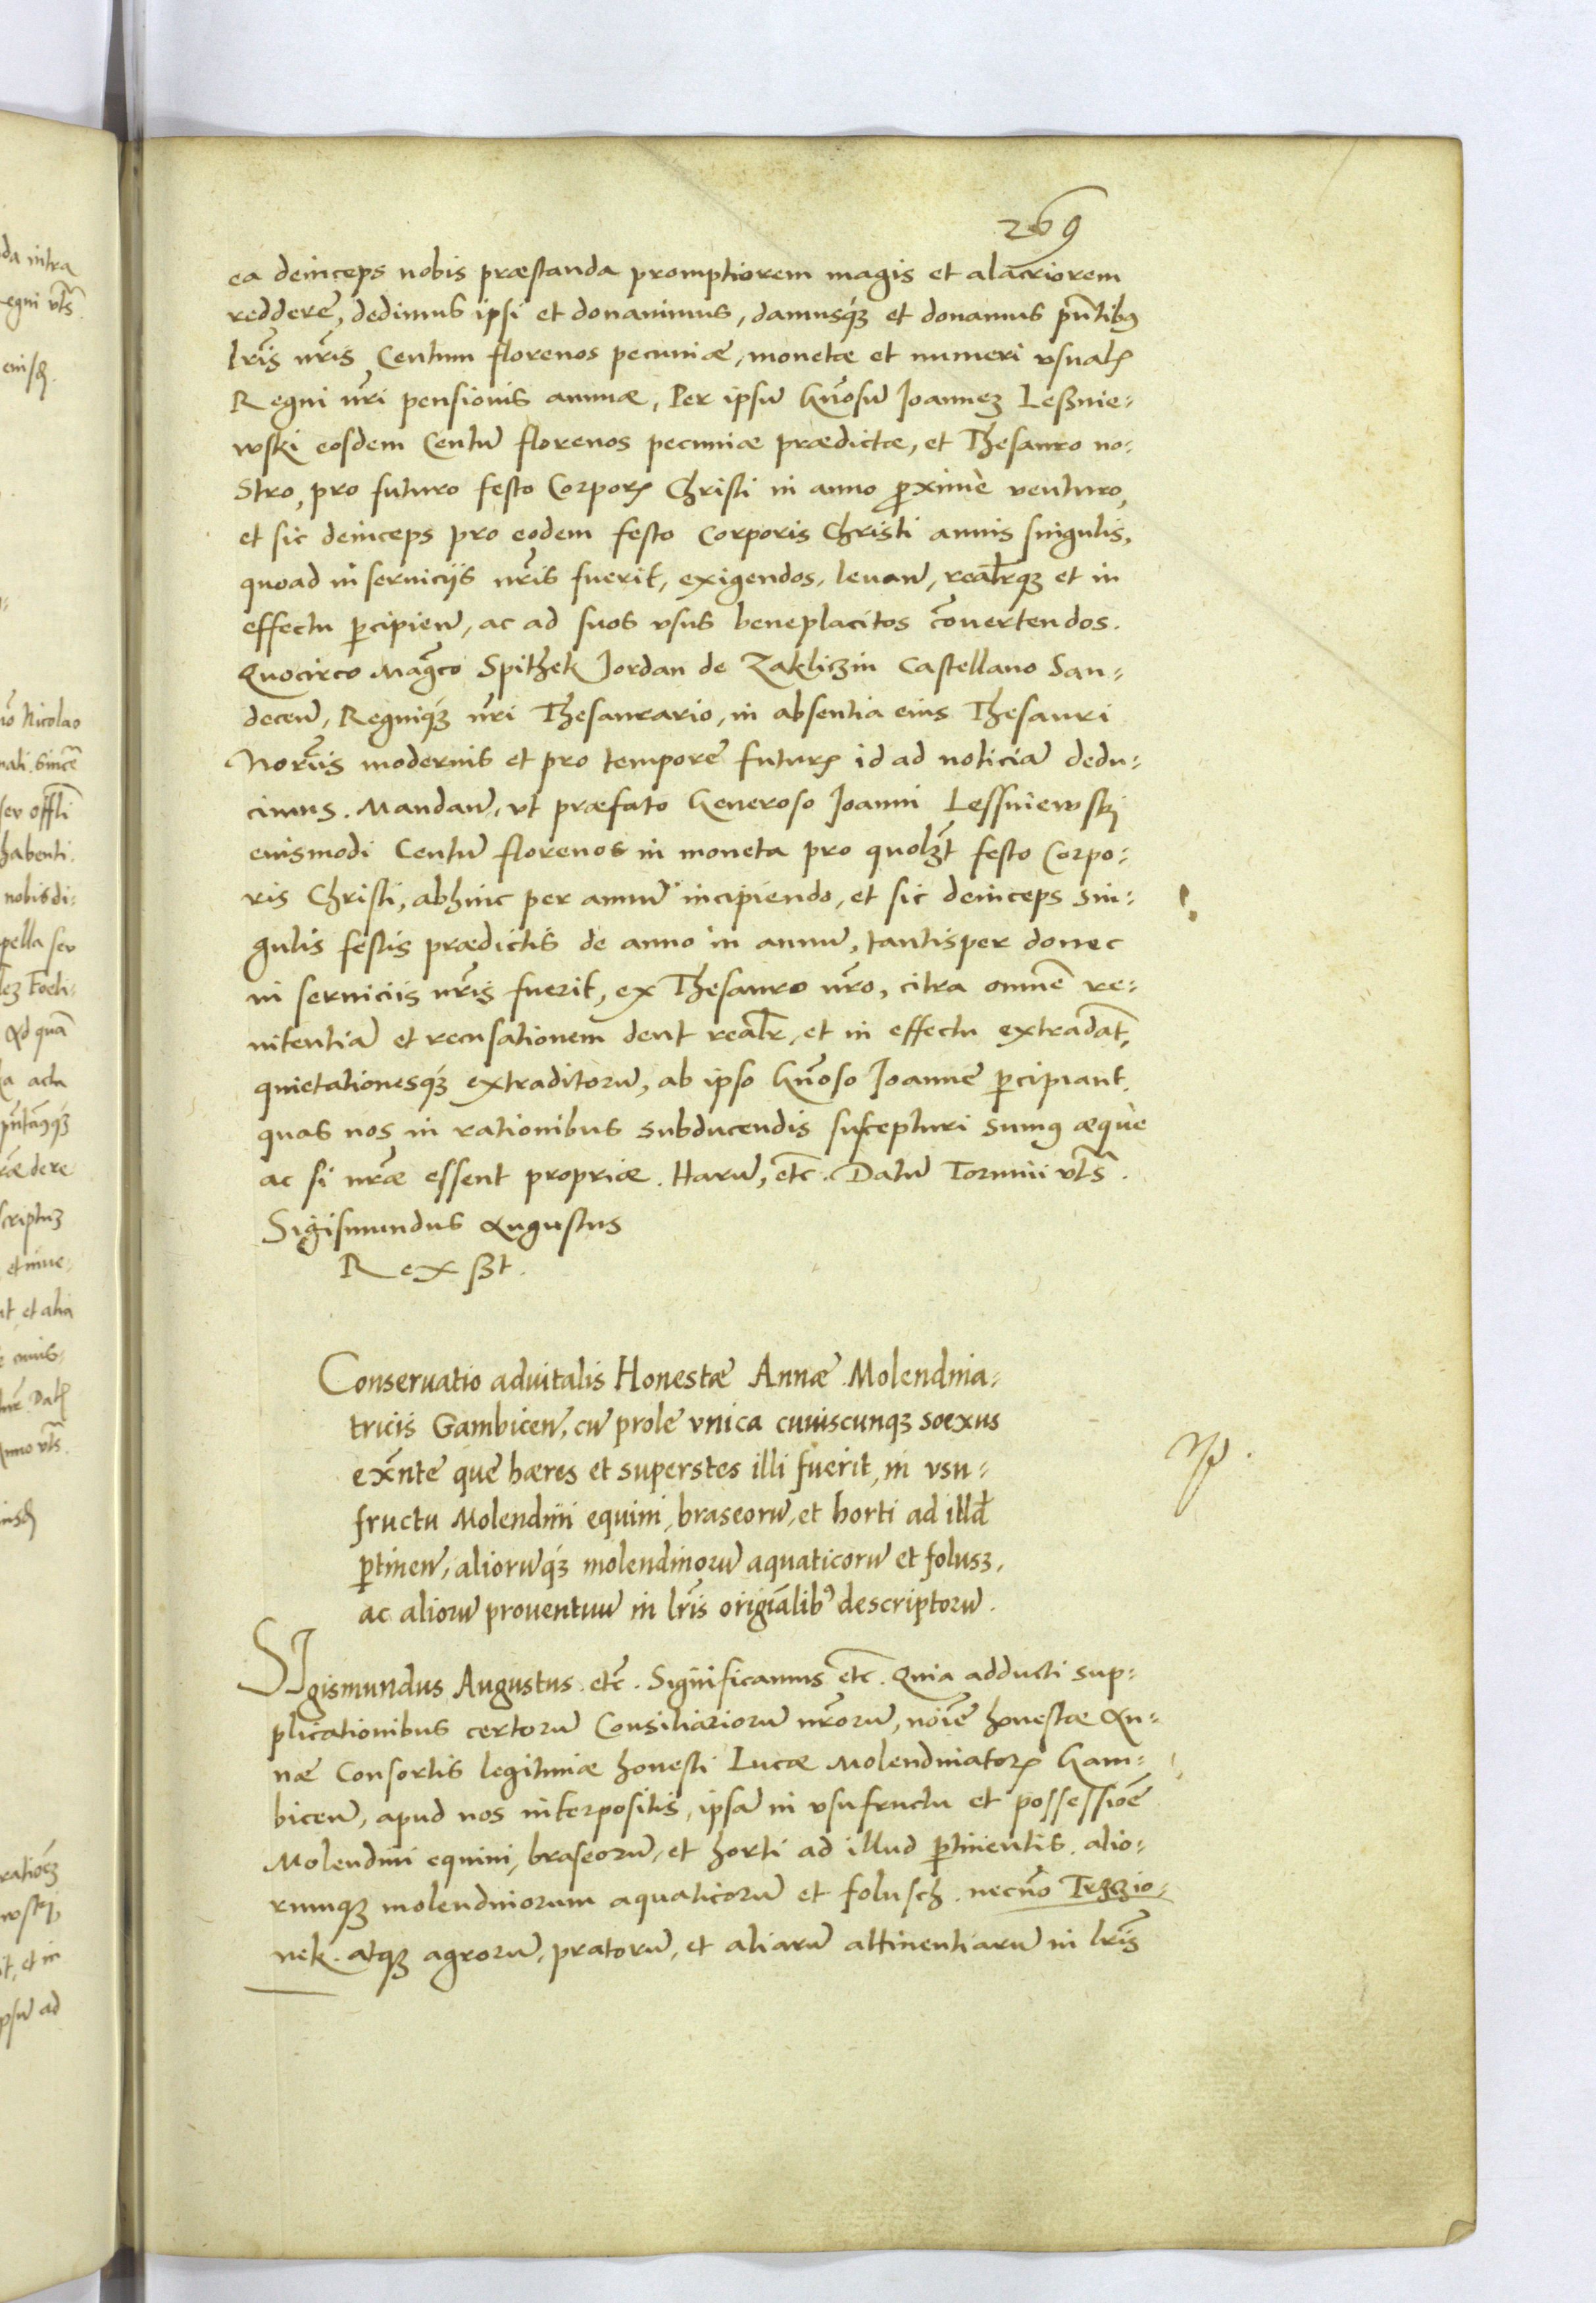 269
ea deinceps nobis præstanda promptiorem magis et alacriorem
reddere, dedimus ipsi et donauimus, damusq́ꝫ et donamus pñtibꝰ
lr̃is nr̃is Centum florenos pecuniæ, monetæ et numeri vsualꝭ
Regni nr̃i pensionis annuæ, Per ipsũ Gñosũ Joanneꝫ Leßnie-
wski eosdem Centũ florenos pecuniæ prædictæ, et Thesauro no-
stro, pro futuro festo Corporꝭ Christi in anno ꝓxime venturo,
et sic deinceps pro eodem festo Corporis Christi annis singulis,
quoad in seruicijs nr̃is fuerit, exigendos, leuan̄, realr̃qꝫ et in
effectu ꝑcipien̄, ac ad suos vsus beneplacitos cõuertendos.
Quocirco Magco Spithek Jordan de Zakliczin Castellano San-
decen̄, Regniq́ꝫ nr̃i Thesaurario, in absentia eius Thesauri
Norijs modernis et pro tempore futurꝭ id ad noticiã dedu-
cimus. Mandan̄, vt præfato Generoso Joanni Lessniewskj
eiusmodi Centũ florenos in moneta pro quolꝫt festo Corpo-
ris Christi, abhinc per annũ incipiendo, et sic deinceps sin-
gulis festis prædictis de anno in annũ, tantisper donec
in seruiciis nr̃is fuerit, ex Thesauro nr̃o, citra omnẽ re-
nitentiã et recusationem dent realr̃, et in effectu extradãt,
quietationesq́ꝫ extraditorũ, ab ipso Gñoso Joanne ꝑcipiant
quas nos in rationibus subducendis suscepturi sumꝰ æque
ac si nr̃æ essent propriæ. Harũ, etc̃. Datũ Torunij vts̃.
Sigismundus Augustus
Rex ßt.
Conseruatio aduitalis Honestæ Annæ Molendina-
tricis Gambicen̄, cũ prole vnica cuiuscunqꝫ soexus
exñte que hæres et superstes illi fuerit, in vsu-
fructu Molendini equini, braseorũ, et horti ad illđ
ꝑtinen̄, aliorũq́ꝫ molendinorũ aquaticorũ et folusꝫ,
ac aliorũ prouentuũ in lr̃is origiãlibꝰ descriptorũ.
SIgismundus Augustus. etc̃. Significamus etc̃. Quia adducti sup-
plicationibus certorũ Consiliariorũ nr̃orũ, noiẽ honestæ An-
næ Consortis legitimæ honesti Lucæ Molendinatorꝭ Gam-
bicen̄, apud nos interpositis, ipsã in vsufructu et possessioẽ
Molendini equini, braseorũ, et horti ad illud ꝑtinentis. alio-
rumqꝫ molendinorum aquaticorũ et folusch. necño Trzczio-
nek. atqꝫ agrorũ, pratorũ, et aliarũ attinentiarũ in lr̃is